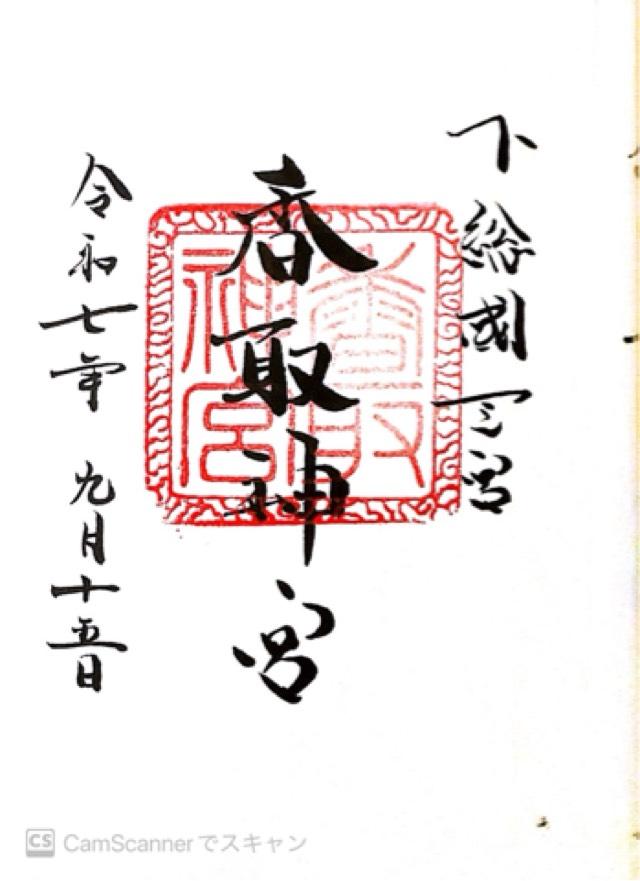 下総國一之宮
香取神宮
香取
神宮
令和七年 九月十五日
CS CamScannerでスキャン